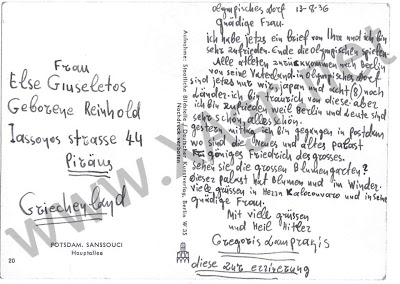 Frau
Else Giuseletos
Geborene Reinhold
Iassonos strasse 44
Piräus
Griechenland
POTSDAM, SANSSOUCI
Hauptallee
20
Aufnahme: Staatliche Bildstelle / Deutscher Kunstverlag, Berlin W 35
Nachdruck verboten
olympisches dorf 13-8-36
gnädige Frau.
ich habe jetzs ein brief von Ihre und ich bin
sehr zufrieden. Ende die olympische spielen.
Alle atleten zurückkommen nach Berlin
von seine Vaterland in olympisches dorf
sind jetzs nur wir, japan und acht (8) noch
Länder. ich bin traurich von diese aber
ich bin zufrieden weil Berlin und Leute sind
sehr schön alles schön.
gestern mittag ich bin gegangen in postdam
wo sind die Neues und altes palast
königes Friedrich des grosses.
Sehen sie die grossen Blumengarten?
Dieser palast hat Blumen und im Winder.
viele grüssen in Herrn und in seine
gnädige Frau.
Mit viele grüssen
und Heil Hitler
Gregoris Lambrakis
diese zur errinerung
www.